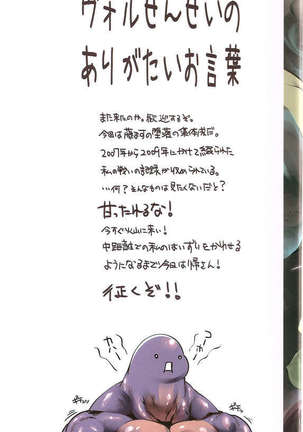 ヴォルせんせいの
ありがたいお言葉
また来たのか。歓迎するぞ。
今回は藤ますの堕落の集体成だ。
2007年から2009年にかけて語られた
私の戦いの記録が収められている。
…何？そんなものは見たくないだと？
甘ったれるな！
今すぐ火山に来い！
中距離での私のはいずりをかわせる
ようになるまで今日は帰さん！
征くぞ！！